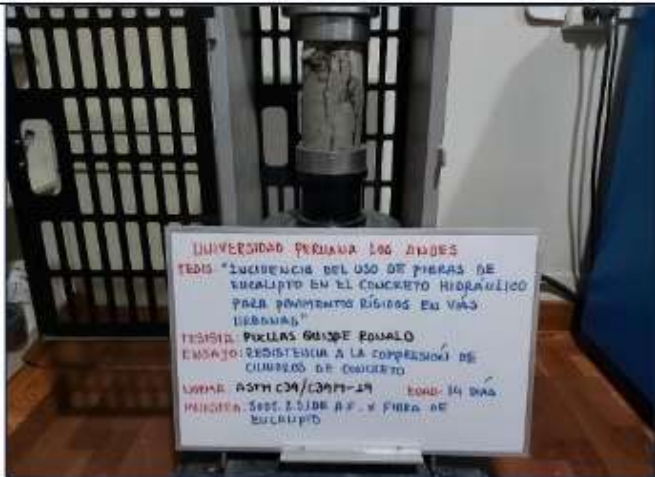 UNIVERSIDAD PERUANA LOS ANDES
TESIS: "INCIDENCIA DEL USO DE FIBRAS DE
EUCALIPTO EN EL CONCRETO HIDRÁULICO
PARA PAVIMENTOS RÍGIDOS EN VÍAS
URBANAS"
TESISTA: QUISPE RONALD
ENSAYO: RESISTENCIA A LA COMPRESIÓN DE
CILINDROS DE CONCRETO
NORMA: ASTM C39/C39M-19 EDAD: 14 DÍAS
MUESTRA: SUST. DE A.F. X FIBRA DE
EUCALIPTO